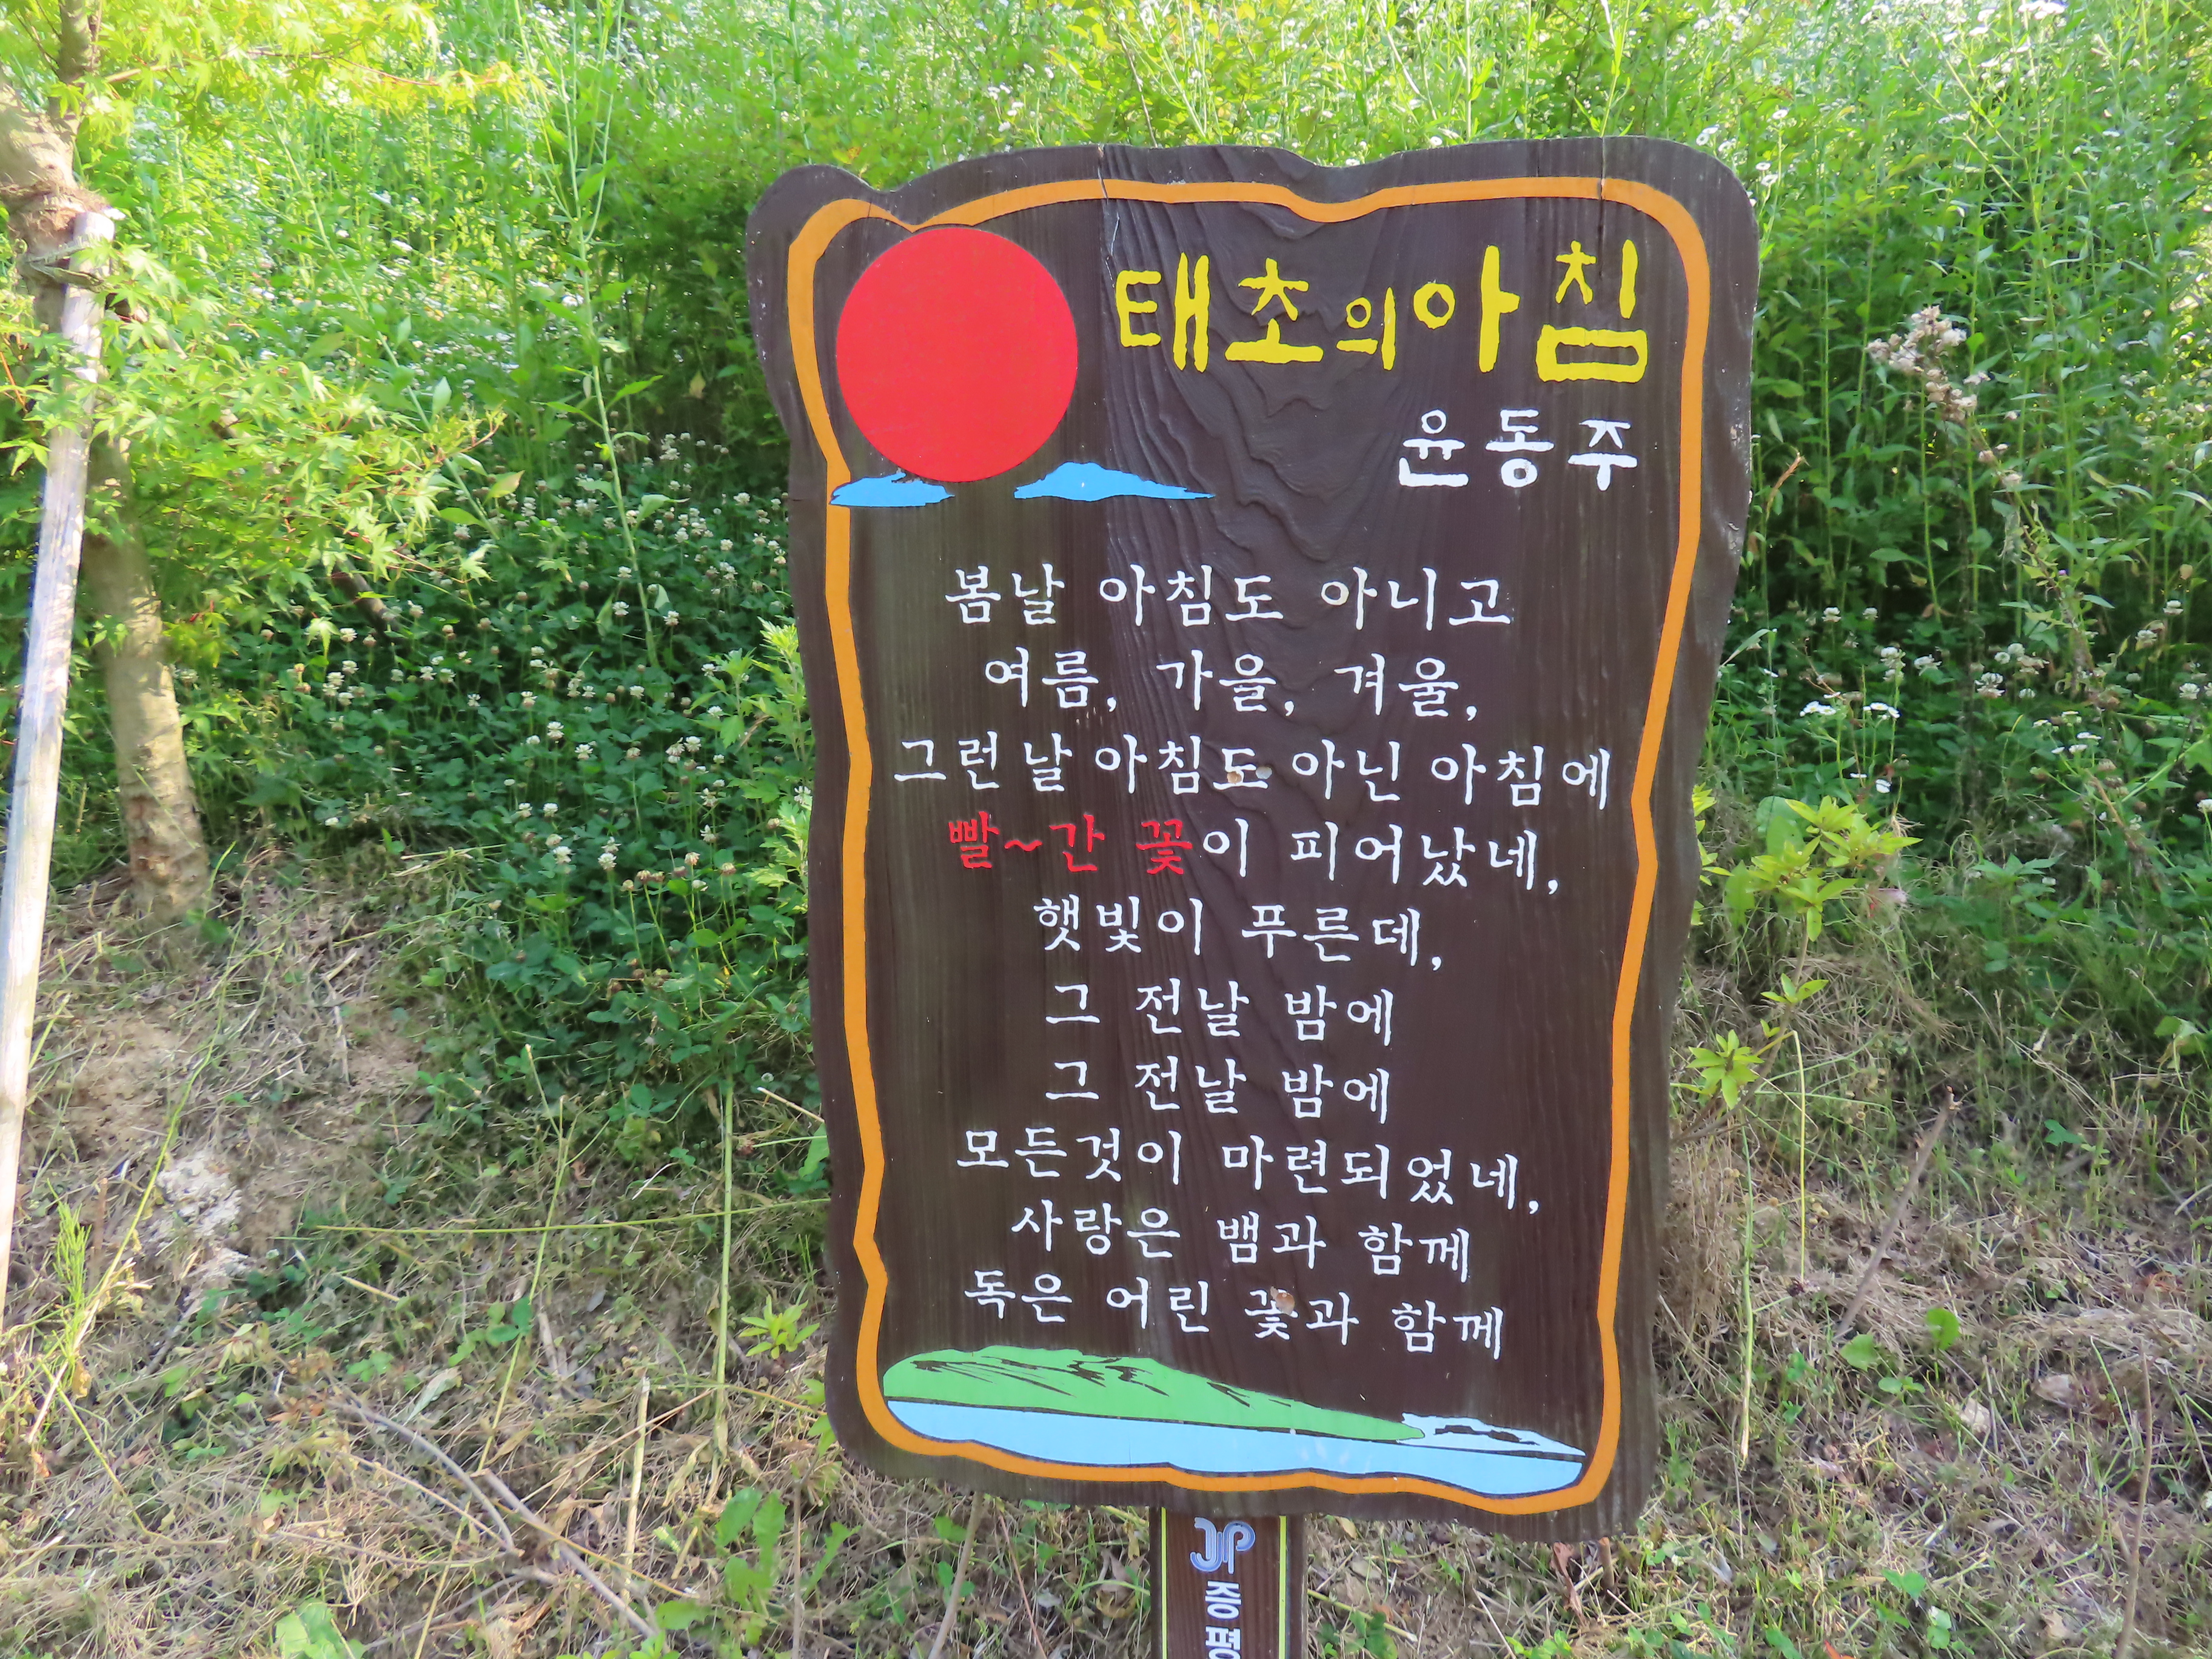 태초의아침
윤동주
봄날 아침도 아니고
여름, 가을, 겨울,
그런날 아침도 아닌 아침에
빨~간 꽃이 피어났네,
햇빛이 푸른데,
그 전날 밤에
그 전날 밤에
모든것이 마련되었네,
사랑은 뱀과 함께
독은 어린 꽃과 함께
JP
증평